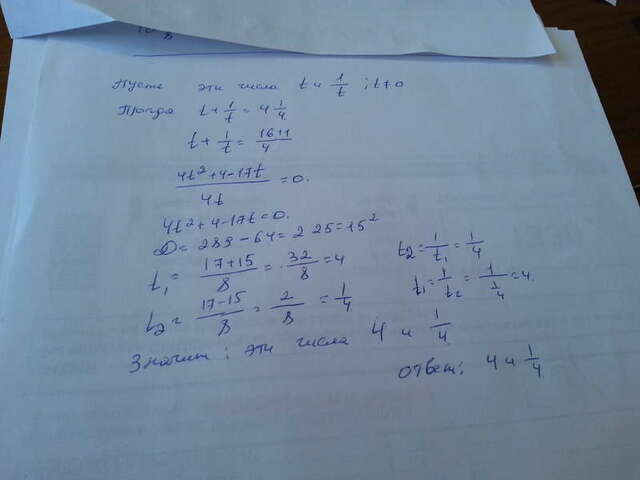 Пусть эти числа t и 1/t ; t≠0
Тогда t + 1/t = 4 1/4
t + 1/t = 16+1/4
4t² + 4 - 17t / 4t = 0.
4t² + 4 - 17t = 0.
D = 289 - 64 = 225 = 15²
t₁ = 17+15/8 = 32/8 = 4
t₂ = 17-15/8 = 2/8 = 1/4
t₂ = 1/t₁ = 1/4
t₁ = 1/t₂ = 1/1/4 = 4.
Значит: эти числа 4 и 1/4.
ответ: 4 и 1/4